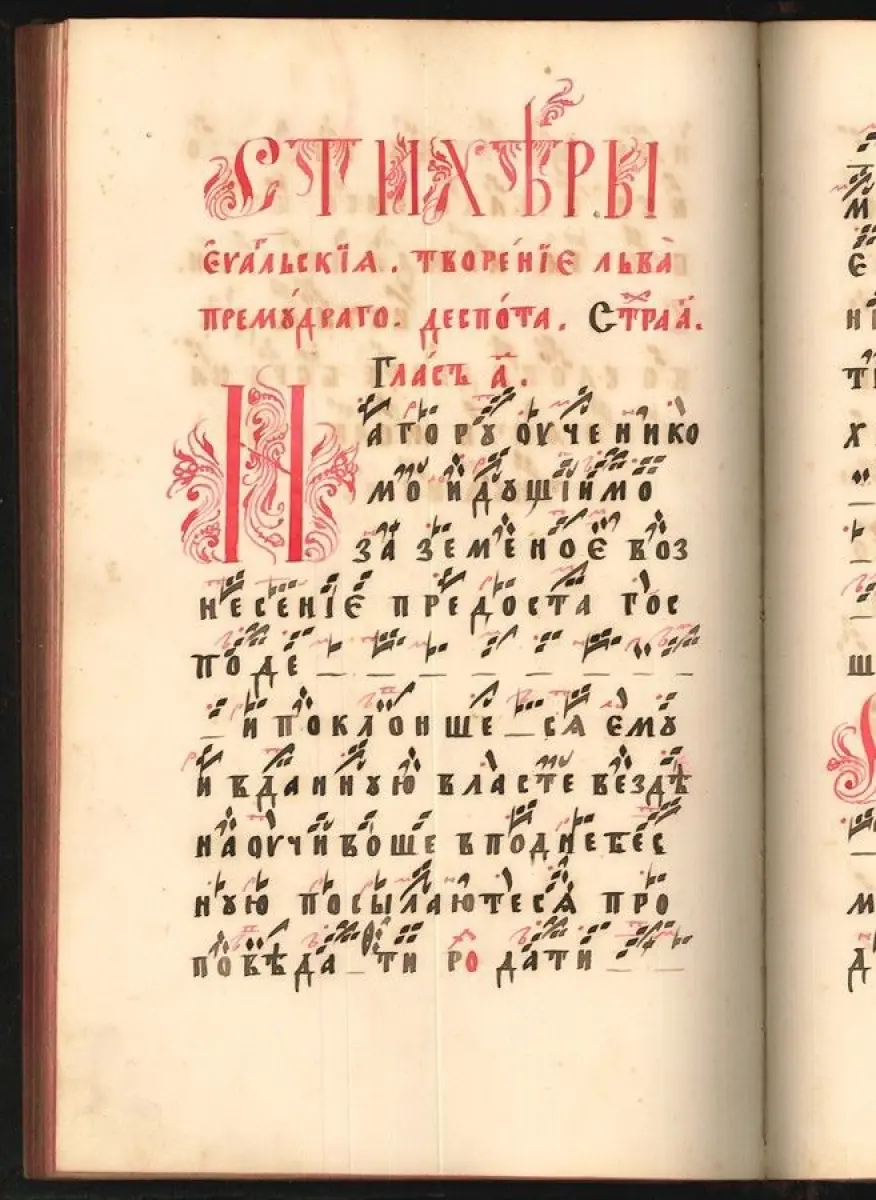 СТИХѢРЫ
ЄѴАЛЬСКІЯ. ТВОРЕ́НІЄ ЛЬВА̀
ПРЕМꙊ́ДРАГО. ДЕСПО́ТА. СТРАⷭ҇ А҃.
ГЛА́СЪ А҃.
НАГОРꙊ ОУЧЕНИКО
МО ИДꙊЩІИМО
ЗА ЗЕМЕНОЄ ВОЗ
НЕСЕНІЄ ПРЕДОСТА ГОС
ПОДЕ
И ПОКЛОНШЕ _ СЯ ЄМꙊ
И ВДАННꙊЮ ВЛАСТЕ ВЕЗДѢ
НАОУЧИВОШЕ ВПОДНЕБЕС
НꙊЮ ПОСЫЛАЮТЕСЯ ПРО
ПОВѢДА _ ТИ РО ДАТИ _ _
М
Є
Х
Ш
М
Д